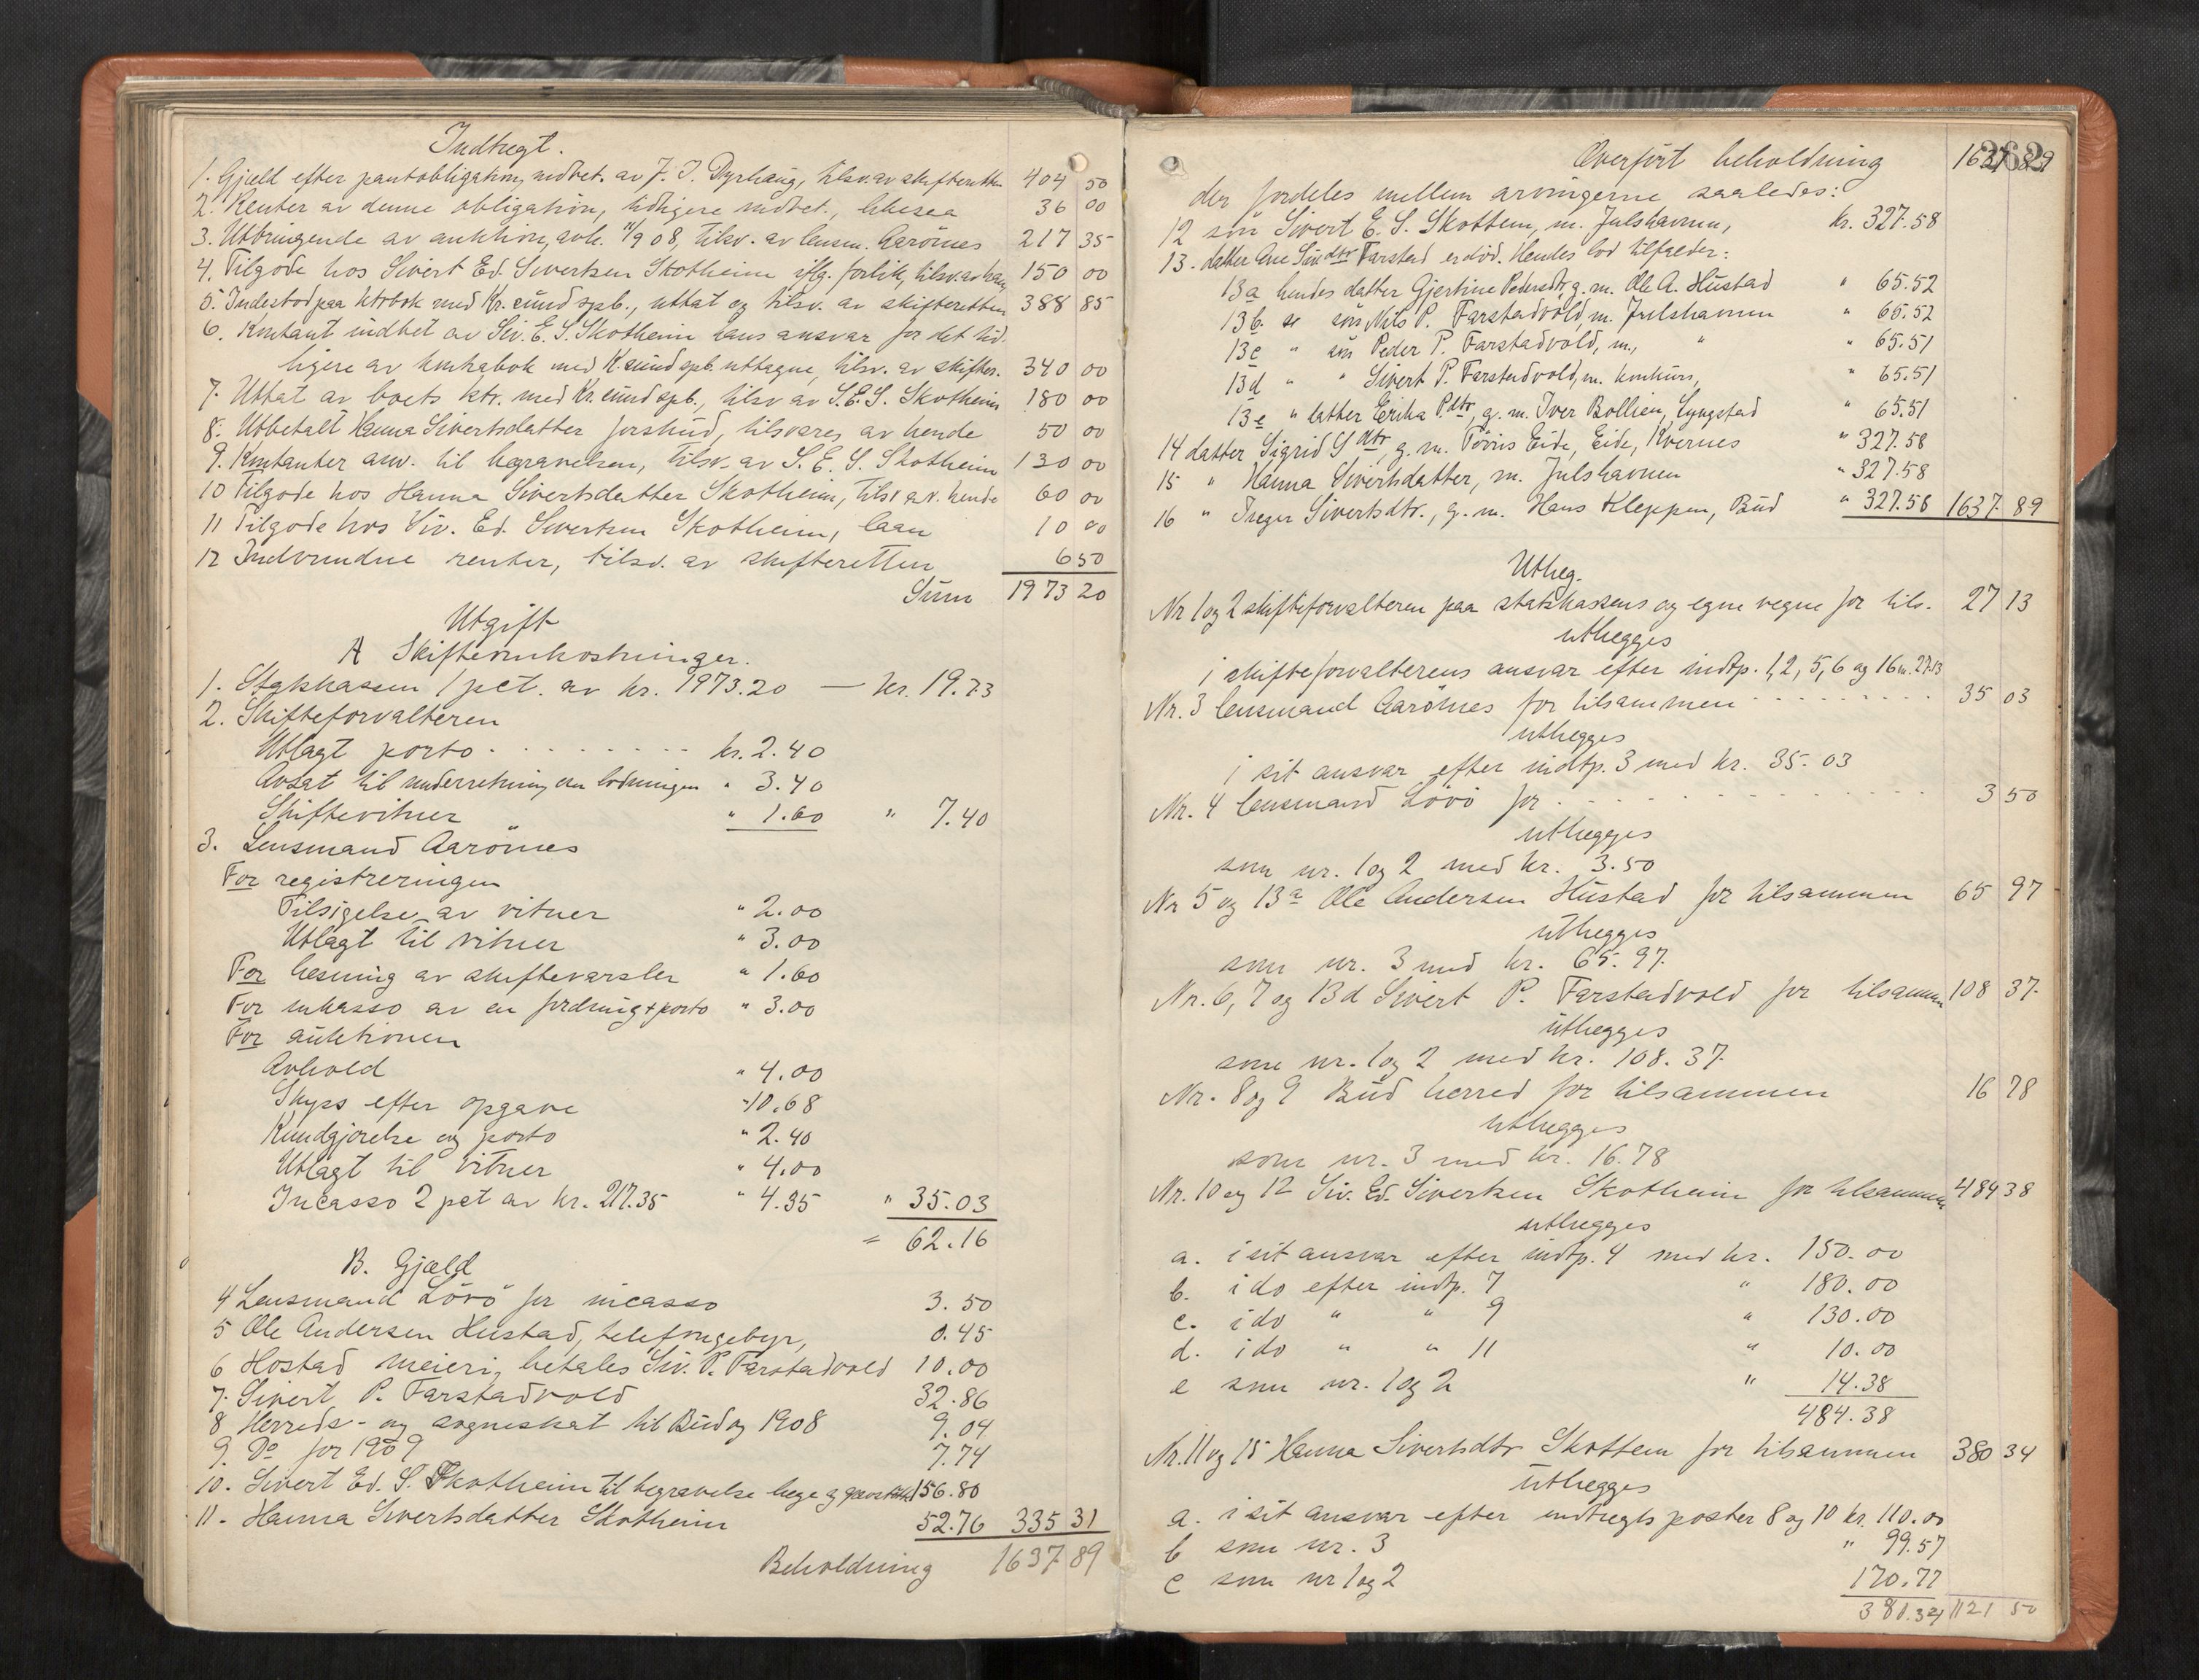 Indtægt.
1. Gjæld efter pantobligation, indbet. av J. J. Dyrhaug, tilsv. av skifteretten 404 50
2. Renter av denne obligation, tidligere indbet., likesaa 36 00
3. Utbringende av auktion, avh. 11/9 08, tilsv. av lensm. Aarönes 217 35
4. Tilgode hos Sivert Ed. Sivertsen Skotheim iflg. forlik, tilsv. av ham 150 00
5. Indestod paa ktrobok med Kr.sund spb., uttat og tilsv. av skifteretten 388 85
6. Kontant indbet av Siv. E. S. Skotheim hans ansvar for det tid-
ligere av kontrabok med K.sund spb. uttagne, tilsv. av skifter. 340 00
7. Uttat av boets ktr. med Kr.sund spb., tilsv av S. E. S. Skotheim 180 00
8. Utbetalt Hanna Sivertsdatter forskud, tilsvares av hende 50 00
9. Kontanter anv. til begravelsen, tilsv. av S. E. S. Skotheim 130 00
10 Tilgode hos Hanna Sivertsdatter Skotheim, tilsv av. hende 60 00
11 Tilgode hos Siv. Ed. Sivertsen Skotheim, laan 10 00
12 Indvundne renter, tilsv. av skifteretten 6 50
Sum 1973 20
Utgift
A Skifteomkostninger.
1. Statskassen 1 pct. av kr. 1973.20 — kr. 19.73
2. Skifteforvalteren
Utlagt porto . . . . . . . . kr. 2.40
Avsat til underretning om lodningen " 3.40
Skiftevitner " 1.60 " 7.40
3. Lensmand Aarönes
For registreringen
Tilsigelse av vitner " 2.00
Utlagt til vitner " 3.00
For læsning av skiftevarsler " 1.60
For inkasso av en fordring + porto " 3.00
For auktionen
Avhold " 4.00
Skyss efter opgave " 10.68
Kundgjørelse og porto " 2.40
Utlagt til vitner " 4.00
Incasso 2 pct av kr. 217.35 " 4.35 " 35.03
= 62.16
B. Gjæld
4 Lensmand Lövö for incasso 3.50
5 Ole Andersen Hustad, telefongebyr, 0.45
6 Hostad meieri, betales Siv. P. Farstadvold 10.00
7. Sivert P. Farstadvold 32.86
8 Herreds- og sogneskat til Bud og 1908 9.04
9. Do for 1909 7.74
10. Sivert Ed. S. Skotheim til begravelse læge og 156.80
11. Hanna Sivertsdatter Skotheim 52.76 335 31
Beholdning 1637 89
262
Overført beholdning 1637 89
der fordeles mellem arvingerne saaledes:
12 søn Sivert E. S. Skottem, m. Julshavnen, kr. 327.58
13. datter Ane Sivdtr Farstad er død. Hendes lod tilfalder:
13a hendes datter Gjertine Pedersdtr g. m. Ole A. Hustad " 65.52
13b. se søn Nils P. Farstadvold, m. Julshavnen " 65.52
13c " søn Peder P. Farstadvold, m., " " 65.51
13d " " Sivert P. Farstadvold, m. konkurs, " 65.51
13e " datter Erika P.dtr, g. m. Iver Bollien, Lyngstad " 65.51
14 datter Sigrid S dtr, g. m. Töris Eide, Eide, Kvernes " 327.58
15 " Hanna Sivertsdatter, m. Julshavnen " 327.58
16 " Inger Sivertsdtr., g. m. Hans Kleppen, Bud " 327.58 1637 89
Utlæg.
Nr 1 og 2 skifteforvalteren paa statskassens og egne vegne for tils. 27 13
utlægges
i skifteforvalterens ansvar efter indtp. 1, 2, 5, 6 og 16 m. 27.13
Nr. 3 lensmand Aarönes for tilsammen . . . . . . . . . 35 03
utlægges
i sit ansvar efter indtp. 3 med kr. 35.03
Nr. 4 lensmand Lövö for . . . . . . . . . . . . . 3 50
utlægges
som nr. 1 og 2 med kr. 3.50
Nr 5 og 13a Ole Andersen Hustad for tilsammen 65 97
utlægges
som nr. 3 med kr. 65.97.
Nr. 6, 7 og 13d Sivert P. Farstadvold for tilsammen 108 37
utlægges
som nr. 1 og 2 med kr. 108.37.
Nr. 8 og 9 Bud herred for tilsammen 16 78
utlægges
som nr. 3 med kr. 16.78
Nr. 10 og 12 Siv. Ed. Sivertsen Skotheim for tilsammen 484 38
utlægges
a. i sit ansvar efter indtp. 4 med kr. 150.00
b. i do efter indtp. 7 " 180.00
c. i do " " 9 " 130.00
d. i do " " 11 " 10.00
e som nr. 1 og 2 " 14.38
484.38
Nr. 11 og 15 Hanna Sivertsdtr Skottem for tilsammen 380 34
utlægges
a. i sit ansvar efter indtægts poster 8 og 10 kr. 110.00
b som nr. 3 " 99.57
c som nr 1 og 2 170.77
380.34 1121 50